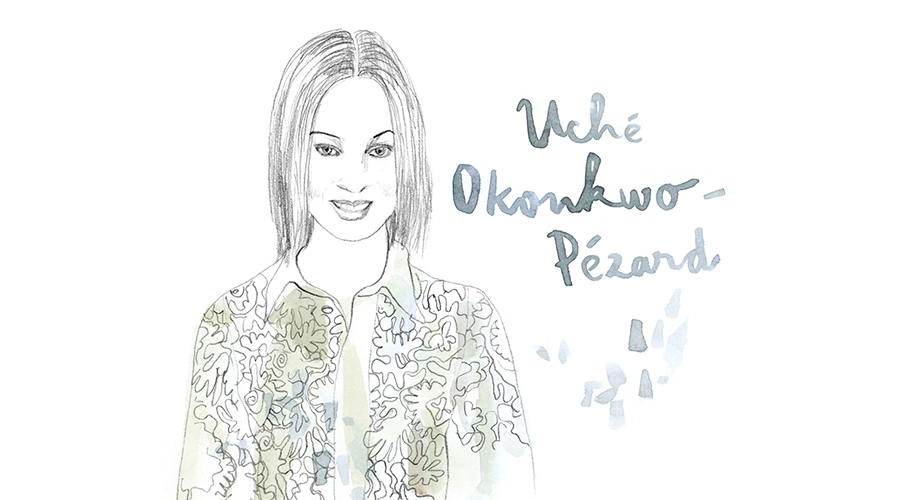 Uché
Okonkwo-
Pézard